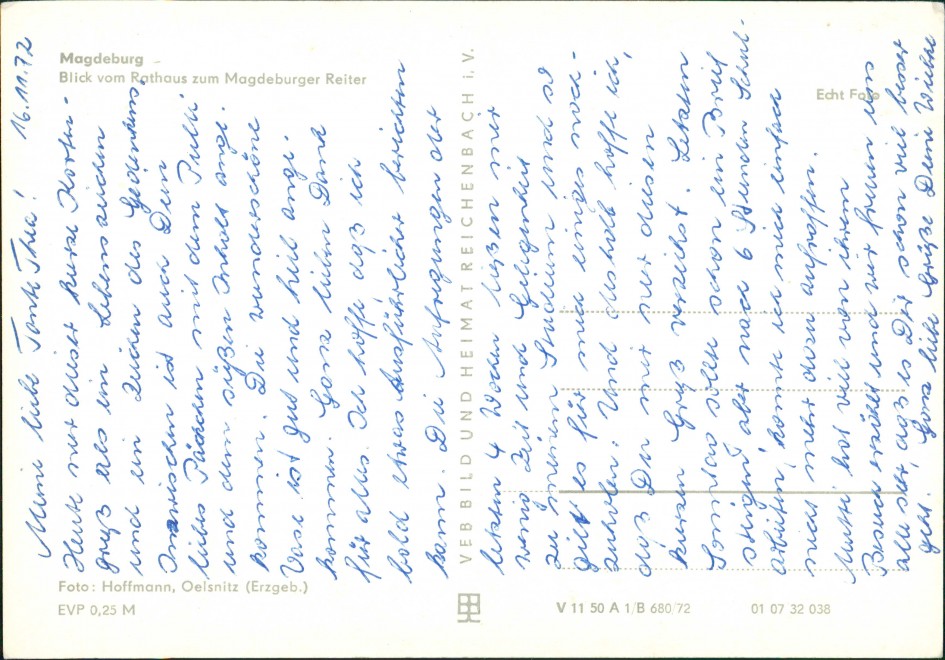 Magdeburg –
Blick vom Rathaus zum Magdeburger Reiter
Echt Foto
16.11.72
Meine liebe Tante Thea!
Heute nur dieser kurze Karten-
gruß als ein Lebenszeichen
und ein Zeichen des Gedenkens.
Inzwischen ist auch Dein
liebes Päckchen mit dem Pulli
und dem süßen Inhalt ange-
kommen. Die wunderschöne
Vase ist gut und heil ange-
kommen. Ganz lieben Dank
für alles. Ich hoffe, daß ich
bald etwas ausführlicher berichten
kann. Die Aufregungen der
letzten 4 Wochen ließen mir
wenig Zeit und Gelegenheit
zu meinem Studium und so
gilt es für mich einiges nach-
zuholen. Und deshalb hoffe ich,
daß Du mir nur diesen
kurzen Gruß verzeihst. Letzten
Sonntag sollte schon ein Brief
steigen, aber nach 6 Stunden Schul-
arbeiten, konnte ich mich einfach
nicht mehr dazu aufraffen.
Mutti hat viel von ihrem
Besuch erzählt und wir freuen uns
alle sehr, daß es Dir schon viel besser
geht. Ganz liebe Grüße Deine Wiebke
VEB BILD UND HEIMAT REICHENBACH i. V.
Foto: Hoffmann, Oelsnitz (Erzgeb.)
EVP 0,25 M
V 11 50 A 1/B 680/72
01 07 32 038